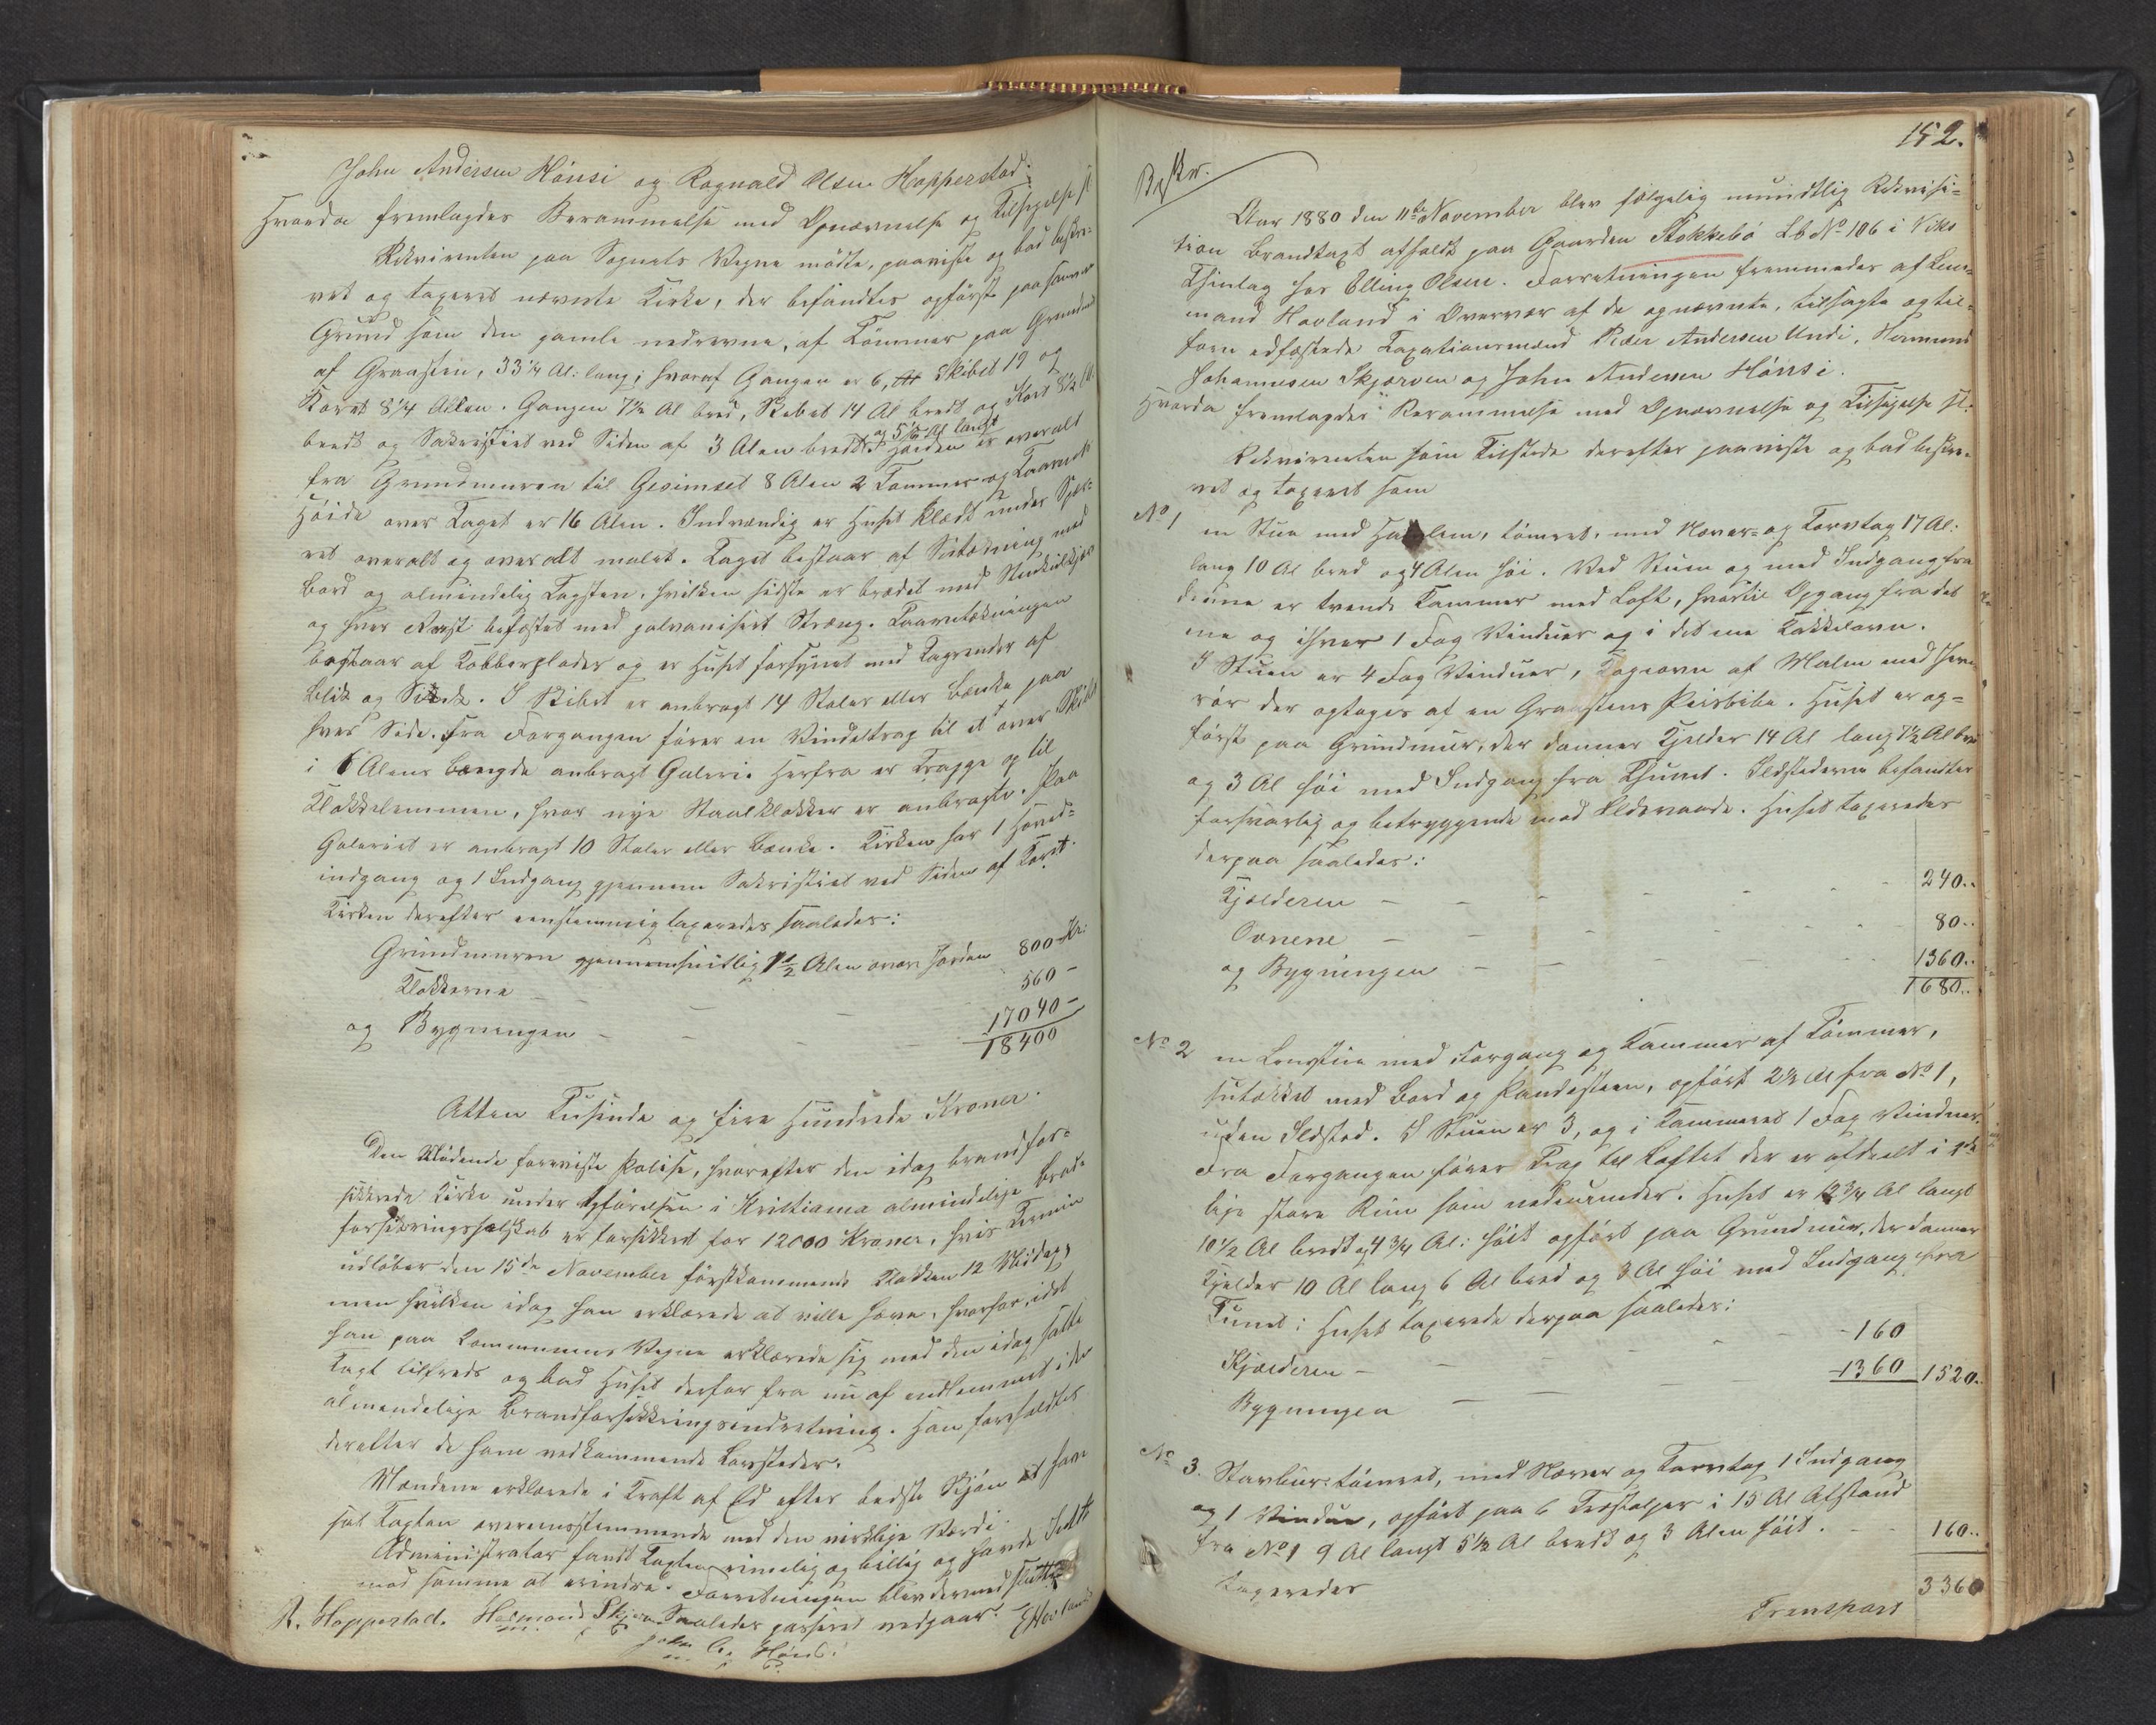 John Andersen Hönsi og Rognald Olsen Hopperstad.
Hvorda fremlagdes Berammelse med Opnævnelse og Tilsigelse
Rekvirenten paa Sognets Vegne mödte, paaviste og bad beskre-
vet og taxeret nævnte Kirke, der befandtes opförst paa samme
Grund som den gamle nedrevne, af Tömmer paa Grundmur
af Graasten, 33 1/4 Al: lang; hvoraf Gangen er 6, Skibet 19 og
Koret 8 1/4 Alen. Gangen 7 1/2 Al bred, Skibet 14 Al bredt og Koret 8 1/2 Al
bredt og Sakristiet ved Siden af 3 Alen bredt og 5 1/2 Al langt. Höiden er overalt
fra Grundmuren til Gesimset 8 Alen 2 Tommer og Taarnets
Höide over Taget er 16 Alen. Indvendig er Huset klædt under Spær-
ret overalt og overalt malet. Taget bestaar af Sutækning med
Bord og almindelig Tagsten, hvilken sidste er
og hver befæstet med galvaniseret Streng. Taarntækningen
bestaar af Kobberplader og er Huset forsynet med Tagrender af
Blik og Sink. I Skibet er anbragt 14 Stoler eller Bænke paa
hver Side. Fra Forgangen förer en Vindeltrap til et over Skibet
i 6 Alens Længde anbragt Galeri. Herfra er Trappe op til
Klokkelemmen, hvor nye Staalklokker er anbragte. Paa
Galeriet er anbragt 10 Stoler eller Bænke. Kirken har 1 Hoved-
indgang og 1 Indgang gjennem Sakristiet ved Siden af Koret.
Kirken derefter eenstemmig taxeredes saaledes:
Grundmuren gjennemsnitlig 1 1/2 Alen over Jorden 800 Kr:
Klokkerne - 560 -
og Bygningen - - - - 17040 -
18400
Atten Tusinde og fire Hundrede Kroner.
Den Mödende foreviste Polise, hvorefter den idag brandfor-
sikkrede Kirke under Opförelsen i Kristiania almindelige Brand-
forsikringsselskab er forsikkret for 12000 Kroner, hvis Termin
udlöber den 15de November förstkommende Klokken 12 Middag,
men hvilken idag han erklærede at ville hæve, hvorfor, idet
han paa Kommunens Vegne erklærede sig med den idag satte
Taxt tilfreds og bad Huset derfor fra nu af indlemmet i den
almindelige Brandforsikkringsindretning. Han foreholdtes
derefter de ham vedkommende Lovsteder.
Mændene erklærede i Kraft af Ed efter bedste Skjön at have
sat Taxten overensstemmende med den virkelige Værdi.
Administrator fandt Taxten rimelig og billig og havde Intet
mod samme at erindre. Forretningen blev dermed sluttet
Saaledes passeret vedgaar. EHovland
R. Hopperstad. Hermond Skjerven
John A. Hönsi
152.
Aar 1880 den 11te November blev fölgelig mundtlig Rekvisi-
tion Brandtaxt afholdt paa Gaarden Stokkebö Lb No 106 i Viks
Thinlag hos Elling Olsen. Forretningen fremmedes af Lens-
mand Hovland i Overvær af de opnævnte, tilsagte og til-
forn edfæstede Taxationsmænd Peder Andersen Undi, Hermund
Johannesen Skjerven og John Andersen Hönsi.
Hvorda fremlagdes Berammelse med Opnævnelse og Tilsigelse
Rekvirenten som Tilstede derefter paaviste og bad beskre-
vet og taxeret som
No 1 en Stue med Halvlem, tömret, med Næver- og Torvtag 17 Al:
lang 10 Al bred og 4 Alen höi. Ved Stuen og med Indgang fra
denne er tvende Kammer med Loft, hvortil Opgang fra det
ene og ihver 1 Fag Vinduer og i det ene Kakkelovn.
I Stuen er 4 Fag Vinduer, Kogeovn af Malm med Jern-
rör der optages af en Graastens Peisbibe. Huset er op-
först paa Grundmur, der danner Kjelder 14 Al lang 7 1/2 Al bred
og 3 Al höi med Indgang fra Thunet. Ildstederne befandtes
forsvarlig og betryggende mod Ildsvaade. Huset taxeredes
derpaa saaledes:
Kjelderen - - - - - 240..
Ovnene - - - - - 80..
og Bygningen - - - - - 1360..
1680..
No 2 en Lonstue med Forgang og Kammer af Tömmer,
sutækket med Bord og Pandesteen, opfört 2 1/2 Al fra No 1,
uden Ildsted. I Stuen er 3, og i Kammeret 1 Fag Vinduer.
Fra Forgangen förer Trap til Loftet der er afdeelt i 4de
lige store Rum som nedenunder. Huset er 12 3/4 Al langt
10 1/2 Al bredt og 4 3/4 Al: höit opfört paa Grundmur, der danner
Kjelder 10 Al lang 6 Al bred og 3 Al höi med Indgang fra
Tunet: Huset taxerede derpaa saaledes:
Kjælderen - - - - - 160
Bygningen - - - - 1360 1520..
No 3. Stavbur: tömret, med Næver og Torvtag 1 Indgang
og 1 Vindue, opfört paa 6 Træstolper i 15 Al Afstand
fra No 1 9 Al langt 5 1/2 Al bredt og 3 Alen höit. -
taxeredes 160..
Transport 3360